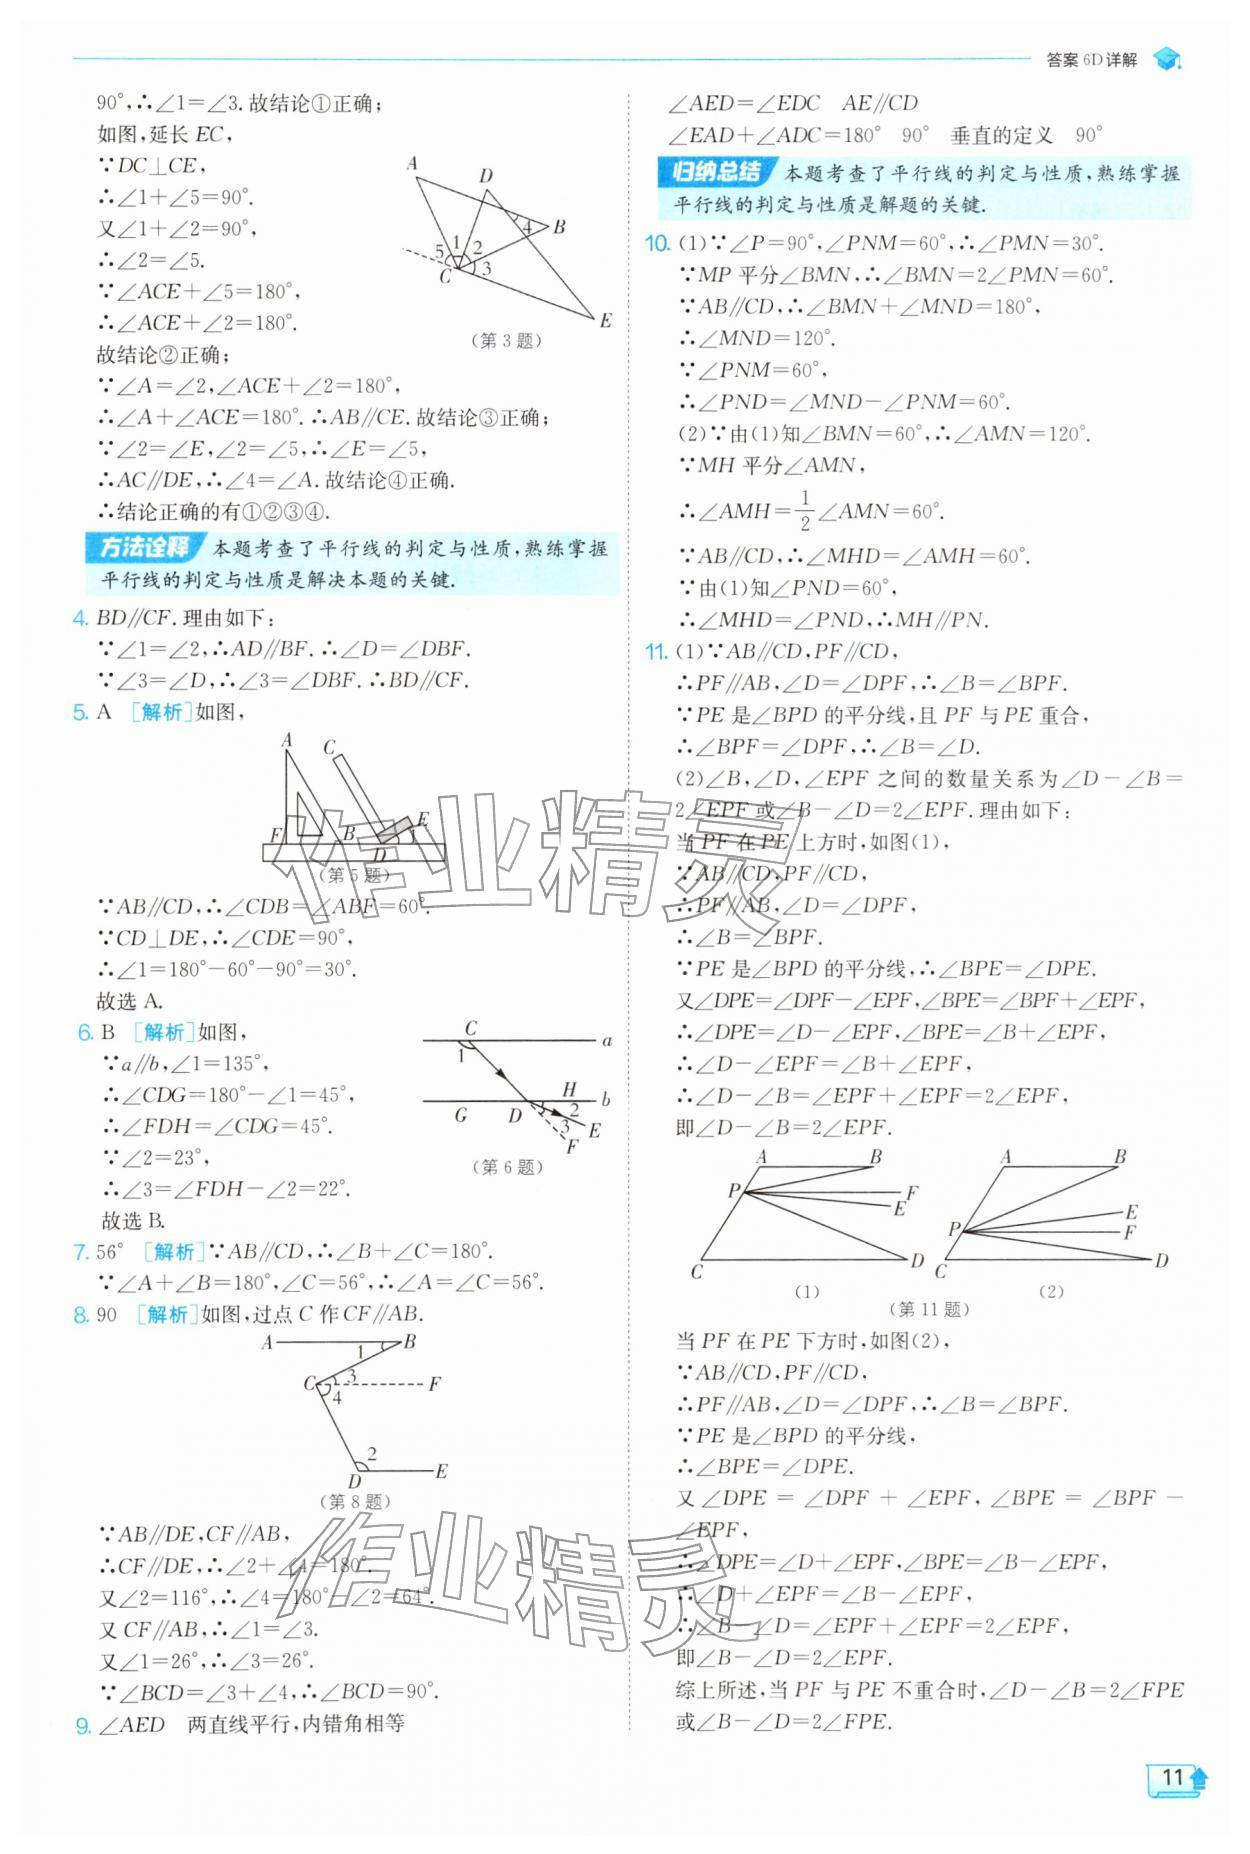 答案 6D 详解
90°,∴∠1=∠3.故结论①正确;
如图,延长 EC,
∵DC⊥CE,
∴∠1+∠5=90°.
又∠1+∠2=90°,
∴∠2=∠5.
∵∠ACE+∠5=180°,
∴∠ACE+∠2=180°.
故结论②正确;
A
D
B
4
5
1
2
3
C
E
(第 3 题)
∵∠A=∠2,∠ACE+∠2=180°,
∴∠A+∠ACE=180°.∴AB∥CE.故结论③正确;
∵∠2=∠E,∠2=∠5,∴∠E=∠5,
∴AC∥DE,∴∠4=∠A.故结论④正确.
∴结论正确的有①②③④.
方法诠释 本题考查了平行线的判定与性质,熟练掌握
平行线的判定与性质是解决本题的关键.
4. BD∥CF.理由如下:
∵∠1=∠2,∴AD∥BF.∴∠D=∠DBF.
∵∠3=∠D,∴∠3=∠DBF.∴BD∥CF.
5. A [解析]如图,
A
C
F
B
E
1
D
(第 5 题)
∵AB∥CD,∴∠CDB=∠ABF=60°.
∵CD⊥DE,∴∠CDE=90°,
∴∠1=180°-60°-90°=30°.
故选 A.
6. B [解析]如图,
∵a∥b,∠1=135°,
∴∠CDG=180°-∠1=45°,
∴∠FDH=∠CDG=45°.
∵∠2=23°,
∴∠3=∠FDH-∠2=22°.
故选 B.
C
a
1
H
b
G
D
2
3
E
F
(第 6 题)
7. 56° [解析]∵AB∥CD,∴∠B+∠C=180°.
∵∠A+∠B=180°,∠C=56°,∴∠A=∠C=56°.
8. 90 [解析]如图,过点 C 作 CF∥AB.
A
B
1
3
C
F
4
2
D
E
(第 8 题)
∵AB∥DE,CF∥AB,
∴CF∥DE,∴∠2+∠4=180°.
又∠2=116°,∴∠4=180°-∠2=64°.
又 CF∥AB,∴∠1=∠3.
又∠1=26°,∴∠3=26°.
∵∠BCD=∠3+∠4,∴∠BCD=90°.
9. ∠AED 两直线平行,内错角相等
∠AED=∠EDC AE∥CD
∠EAD+∠ADC=180° 90° 垂直的定义 90°
归纳总结 本题考查了平行线的判定与性质,熟练掌握
平行线的判定与性质是解题的关键.
10. (1)∵∠P=90°,∠PNM=60°,∴∠PMN=30°.
∵MP 平分∠BMN,∴∠BMN=2∠PMN=60°.
∵AB∥CD,∴∠BMN+∠MND=180°,
∴∠MND=120°.
∵∠PNM=60°,
∴∠PND=∠MND-∠PNM=60°.
(2)∵由(1)知∠BMN=60°,∴∠AMN=120°.
∵MH 平分∠AMN,
∴∠AMH=1/2∠AMN=60°.
∵AB∥CD,∴∠MHD=∠AMH=60°.
∵由(1)知∠PND=60°,
∴∠MHD=∠PND,∴MH∥PN.
11. (1)∵AB∥CD,PF∥CD,
∴PF∥AB,∠D=∠DPF,∴∠B=∠BPF.
∵PE 是∠BPD 的平分线,且 PF 与 PE 重合,
∴∠BPF=∠DPF,∴∠B=∠D.
(2)∠B,∠D,∠EPF 之间的数量关系为∠D-∠B=
2∠EPF 或∠B-∠D=2∠EPF.理由如下:
当 PF 在 PE 上方时,如图(1),
∵AB∥CD,PF∥CD,
∴PF∥AB,∠D=∠DPF,
∴∠B=∠BPF.
∵PE 是∠BPD 的平分线,∴∠BPE=∠DPE.
又∠DPE=∠DPF-∠EPF,∠BPE=∠BPF+∠EPF,
∴∠DPE=∠D-∠EPF,∠BPE=∠B+∠EPF,
∴∠D-∠EPF=∠B+∠EPF,
∴∠D-∠B=∠EPF+∠EPF=2∠EPF,
即∠D-∠B=2∠EPF.
A
B
P
F
E
C
D
(1)
A
B
P
E
F
C
D
(2)
(第 11 题)
当 PF 在 PE 下方时,如图(2),
∵AB∥CD,PF∥CD,
∴PF∥AB,∠D=∠DPF,∴∠B=∠BPF.
∵PE 是∠BPD 的平分线,
∴∠BPE=∠DPE.
又∠DPE=∠DPF+∠EPF,∠BPE=∠BPF-
∠EPF,
∴∠DPE=∠D+∠EPF,∠BPE=∠B-∠EPF,
∴∠D+∠EPF=∠B-∠EPF,
∴∠B-∠D=∠EPF+∠EPF=2∠EPF,
即∠B-∠D=2∠EPF.
综上所述,当 PF 与 PE 不重合时,∠D-∠B=2∠FPE
或∠B-∠D=2∠FPE.
作业精灵
作业精灵
11